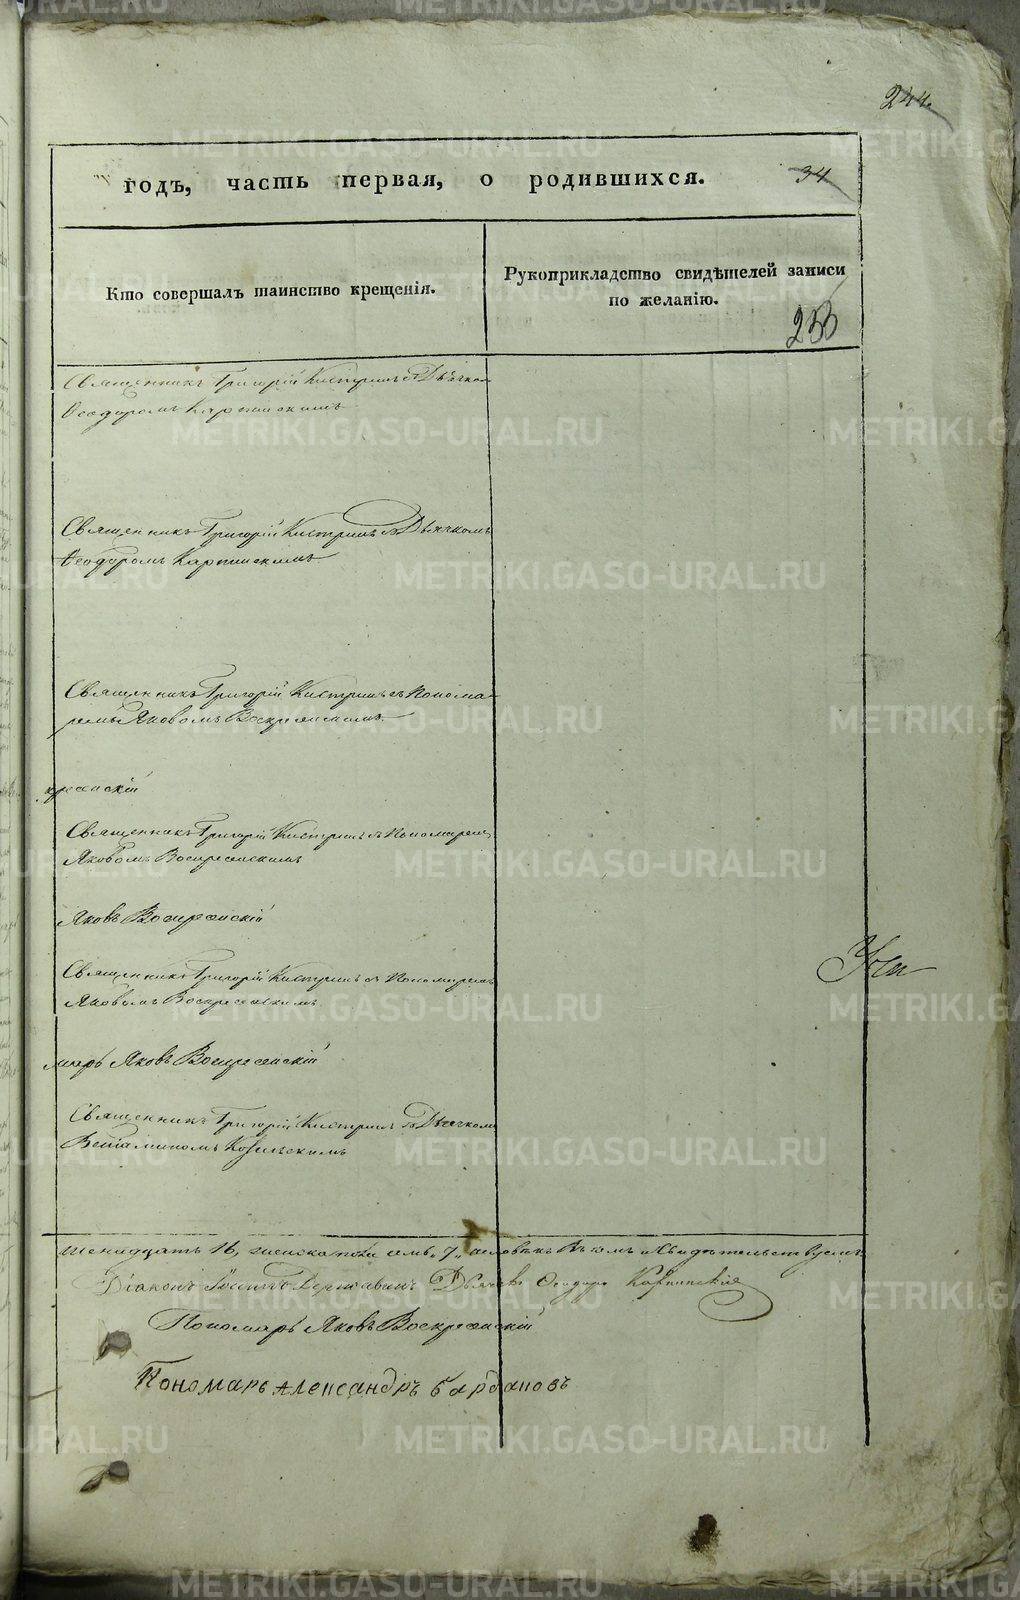 244.
годъ, часть первая, о родившихся.
34
Кто совершалъ таинство крещенія.
Рукоприкладство свидѣтелей записи
по желанію.
233
Священникъ Григорій съ Дьячкомъ
Ѳеодоромъ Карпинскимъ
Священникъ Григорій съ Дьячкомъ
Ѳеодоромъ Карпинскимъ
Священникъ Григорій съ Понома-
ремъ Яковомъ Воскресенскимъ
кресенскій
Священникъ Григорій съ Пономаремъ
Яковомъ Воскресенскимъ
Яковъ Воскресенскій
Священникъ Григорій съ Пономаремъ
Яковомъ Воскресенскимъ
марь Яковъ Воскресенскій
Священникъ Григорій съ Дьячкомъ
Веніаминомъ
16, женска пола семь 7, человѣкъ въ томъ и свидѣтельствуемъ
Діаконъ Державинъ Дьячекъ Ѳеодоръ Карпинскій
Пономарь Яковъ Воскресенскій
Пономарь Александръ
METRIKI.GASO-URAL.RU